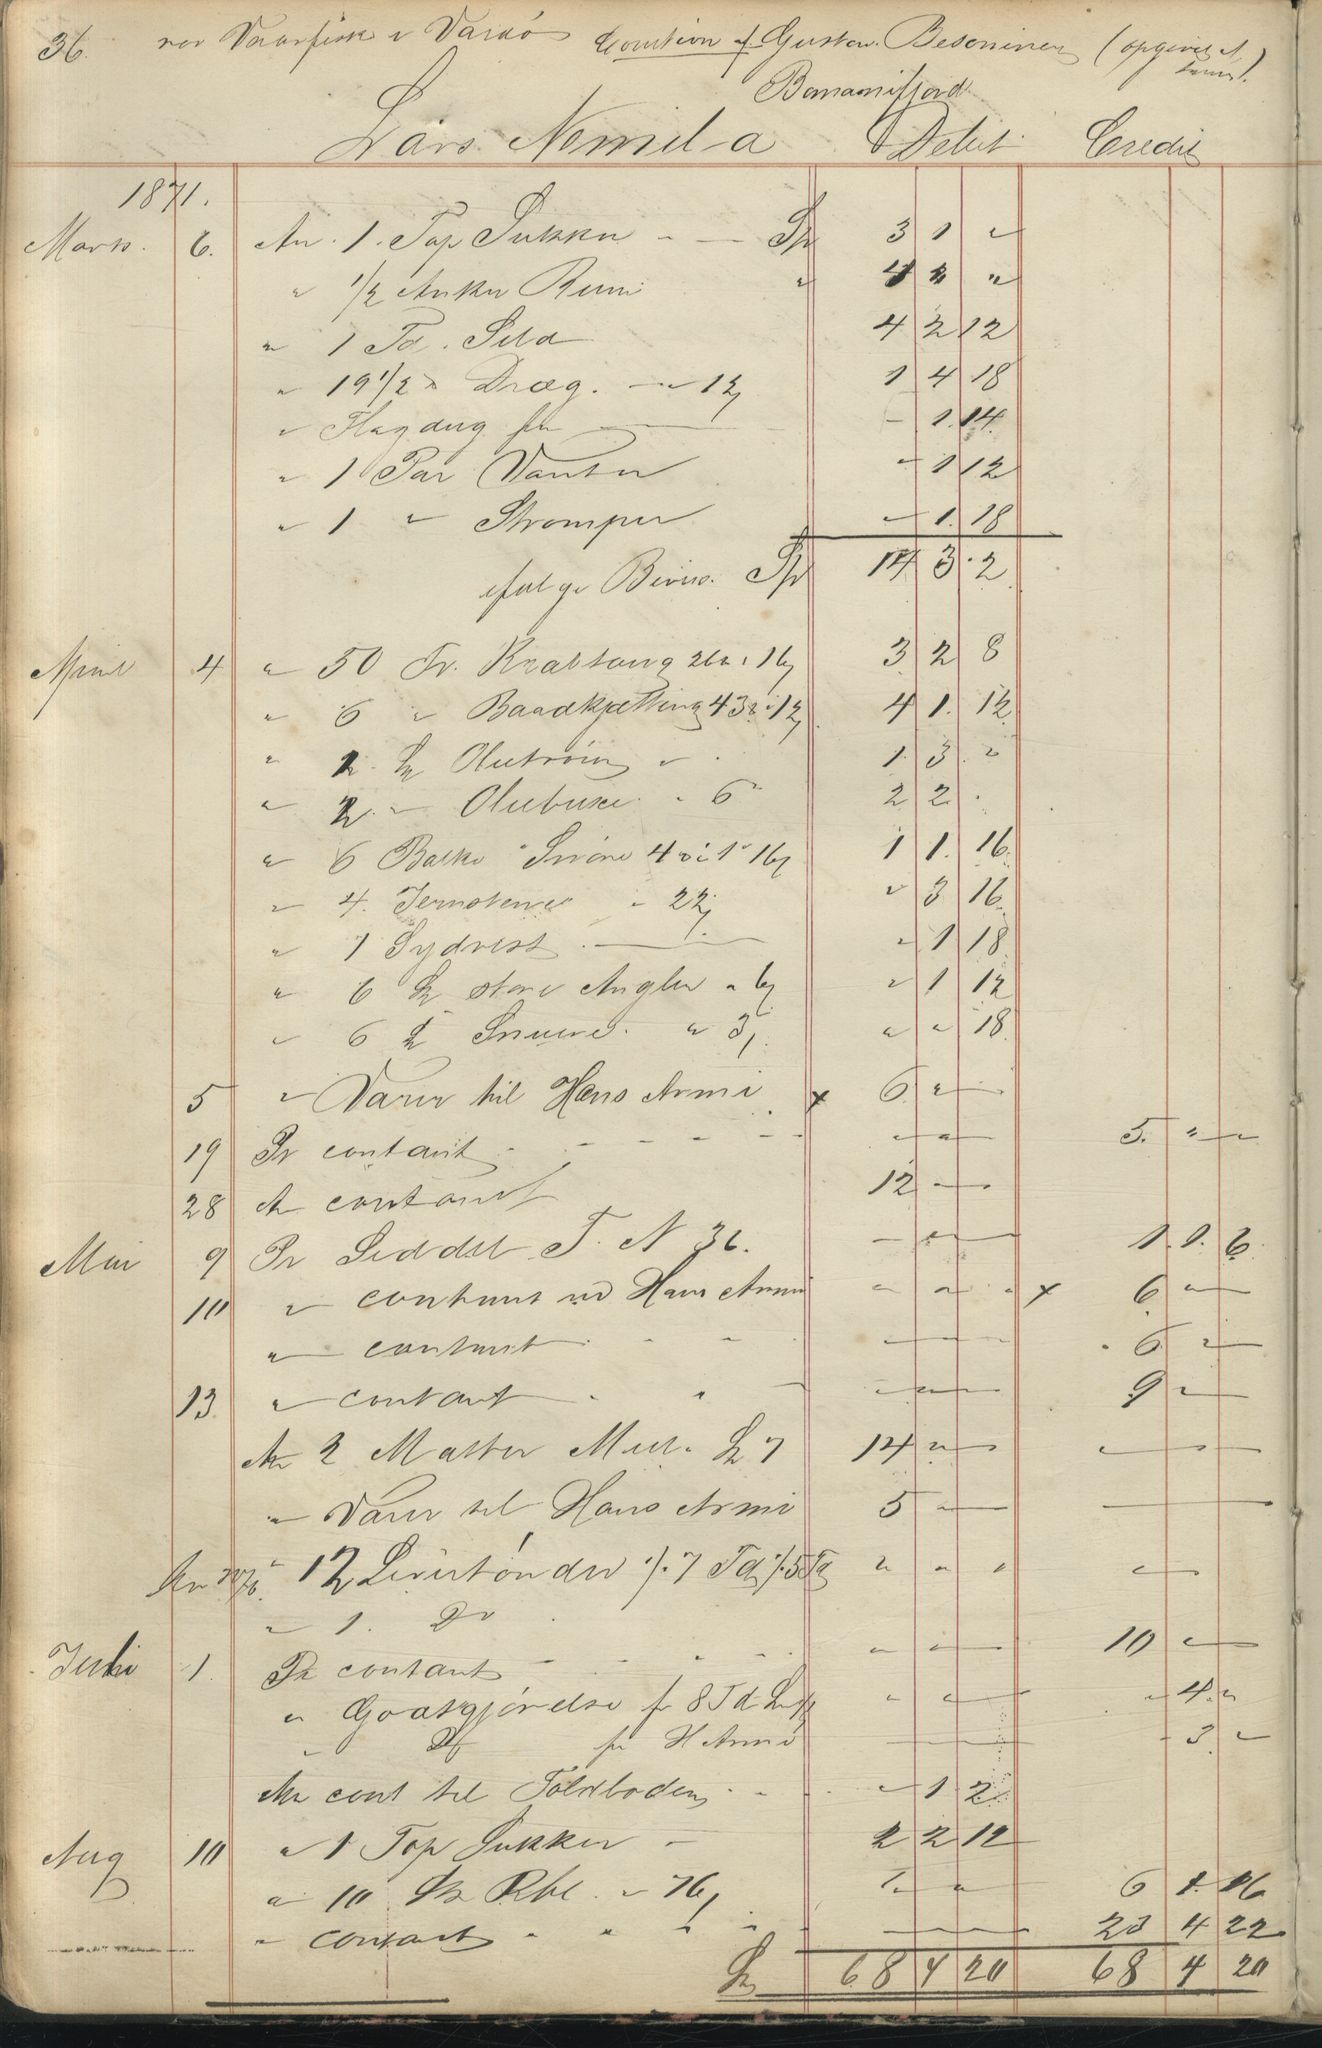 36. Vaarfisk i Vardö Caution af Gustav Besoninen (opgivet af
Bomanifjord
Lars Nomila Debet Credit
1871.
Marts. 6. An. 1. Top Sukker - - Sp 3 1 "
" 1/2 Anker Rum " 4 2 "
" 1 Td. Sild 4 2 12
" 19 1/2 Dræg. - 12 1 4 18
" Flagdug for - 1. 14.
" 1 Par Vanter " 1 12
" 1 " Strømper " 1. 18
ifølge Bevis. Sp 14 3. 2
April 4 " 50 Fv. Krabtoug 26 16 3 2 8
" 6 " Baadkjætting 43 12 4 1. 12
" 2. Olietröier " 1. 3. "
" 2. " Oliebuxe. " 6 2 2.
" 6 Balke Snöre 4 1 16 1 1. 16.
" 4. Jernstene " 22 " 3 16.
" 1 Sydvest " 1 18.
" 6 store Angler " 6 " 1 12
" 6 Snuure. " 3 " " 18.
5 " Varer til Hans Armi x 6 "
19 Pr contant 5. " "
28 An contant 12 "
Mai 9 Pr Seddel F. N 36. 1. 1. 6.
10 " contant ved Hans Armi " " " x 6 "
" contant 6 "
13 " contant 9 "
An 2 Matter Meel 7 14 "
" Varer til Hans Armi 5 "
An " 12 Levertönder ./. 7 Td ./. 5 Td " " "
" 1. Do
Juli 1. Pr contant 10 "
" Godtgjörelse for 8 Td " " " 4. "
" Do for H Armi - 3. "
An cont til Toldboden " 1 2
Aug 10 " 1 Top Sukker - 2 2 12
" 10 Rbl. " 76 6 1. 16
" contant 23 4 22
68 4 20 68 4 20